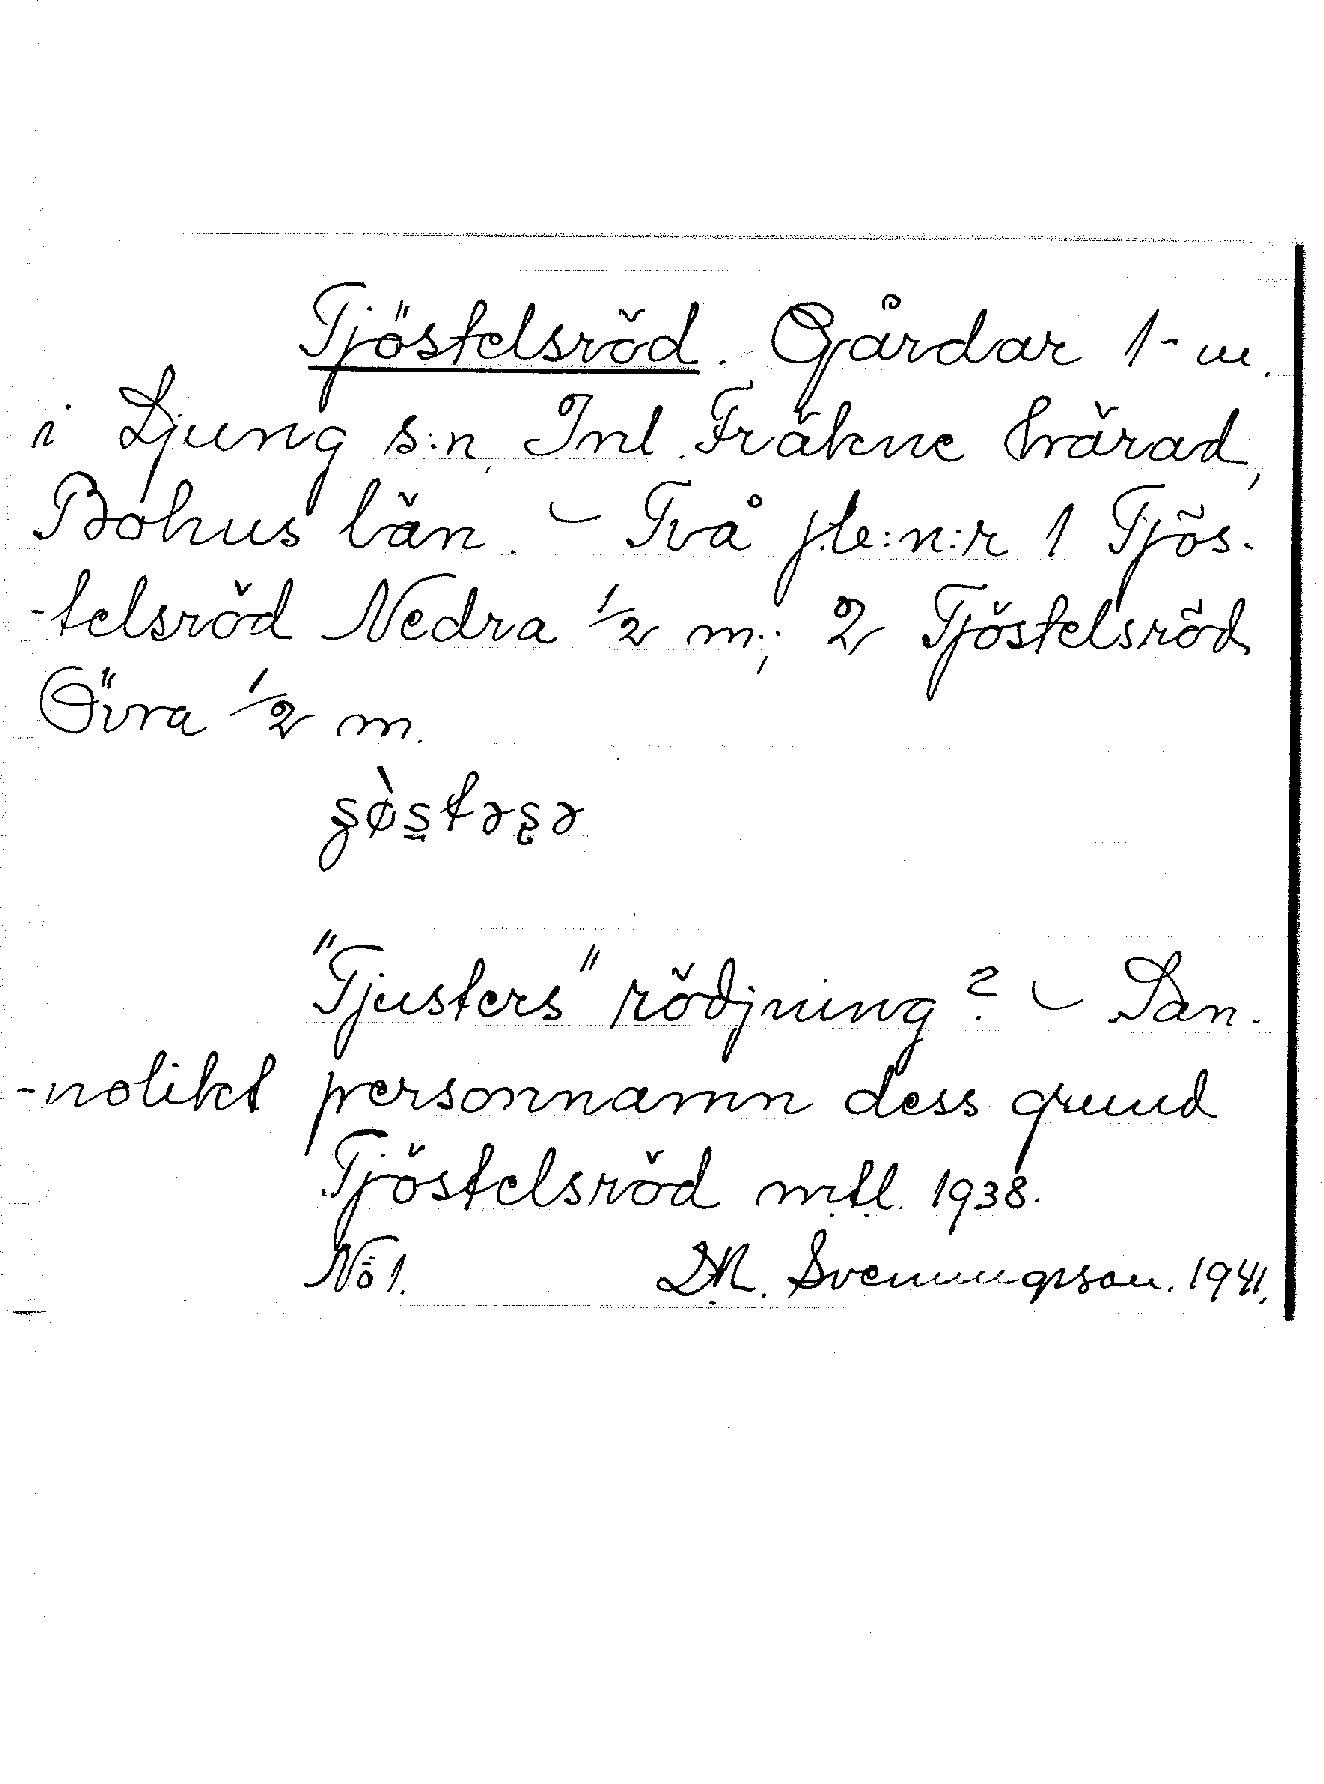 Tjöstelsröd. Gårdar 1-m.
i Ljung s:n, Inl. Fräkne härad,
Bohus län. - Två jb:n:r 1 Tjös-
-telsröd Nedra 1/2 m.; 2 Tjöstelsröd
Övra 1/2 m.
"Tjusters" rödjning? - San-
-nolikt personnamn dess grund
Tjöstelsröd m.t.l. 1938.
No 1. Svenungsson. 1941.